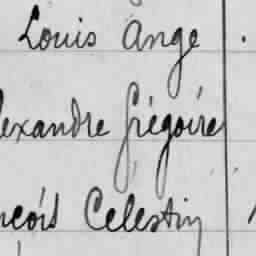 Louis Ange
lexandre Grégoire
nçois Celestin